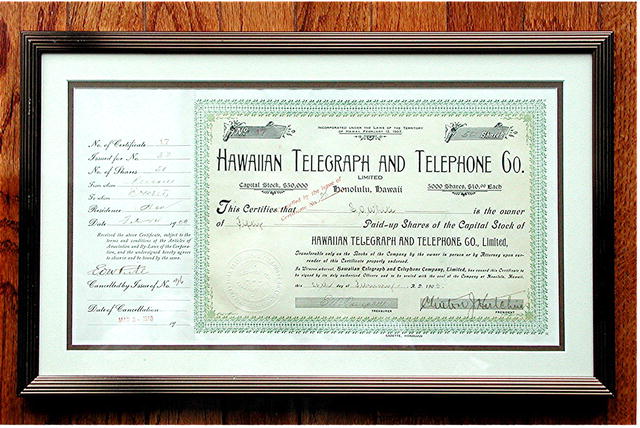 No. of Certificate 37
Issued for No.
No. of Shares 50
From whom
To whom
Residence
Date
Received the above Certificate, subject to the
terms and conditions of the Articles of
Association and By-Laws of the Corporation,
and the undersigned hereby agrees
to observe and be bound by the same.
E O White
Cancelled by Issue of No.
Date of Cancellation
19
No.
INCORPORATED UNDER THE LAWS OF THE TERRITORY
OF HAWAII, FEBRUARY 12, 1902
50 Shares
HAWAIIAN TELEGRAPH AND TELEPHONE CO.
LIMITED
Capital Stock, $50,000
Honolulu, Hawaii
5000 Shares, $10.00 Each
Cancelled by the issue of
Certificate No.
This Certifies that E. O. White is the owner
of Fifty Paid-up Shares of the Capital Stock of
HAWAIIAN TELEGRAPH AND TELEPHONE CO., Limited,
Transferable only on the Books of the Company by the owner in person or by Attorney upon surrender
of this Certificate properly endorsed.
In Witness whereof, Hawaiian Telegraph and Telephone Company, Limited, has caused this Certificate to
be signed by its duly authorized Officers and to be sealed with the seal of the Company at Honolulu, Hawaii,
this day of A. D. 190
TREASURER
Clinton J Hutchins
PRESIDENT